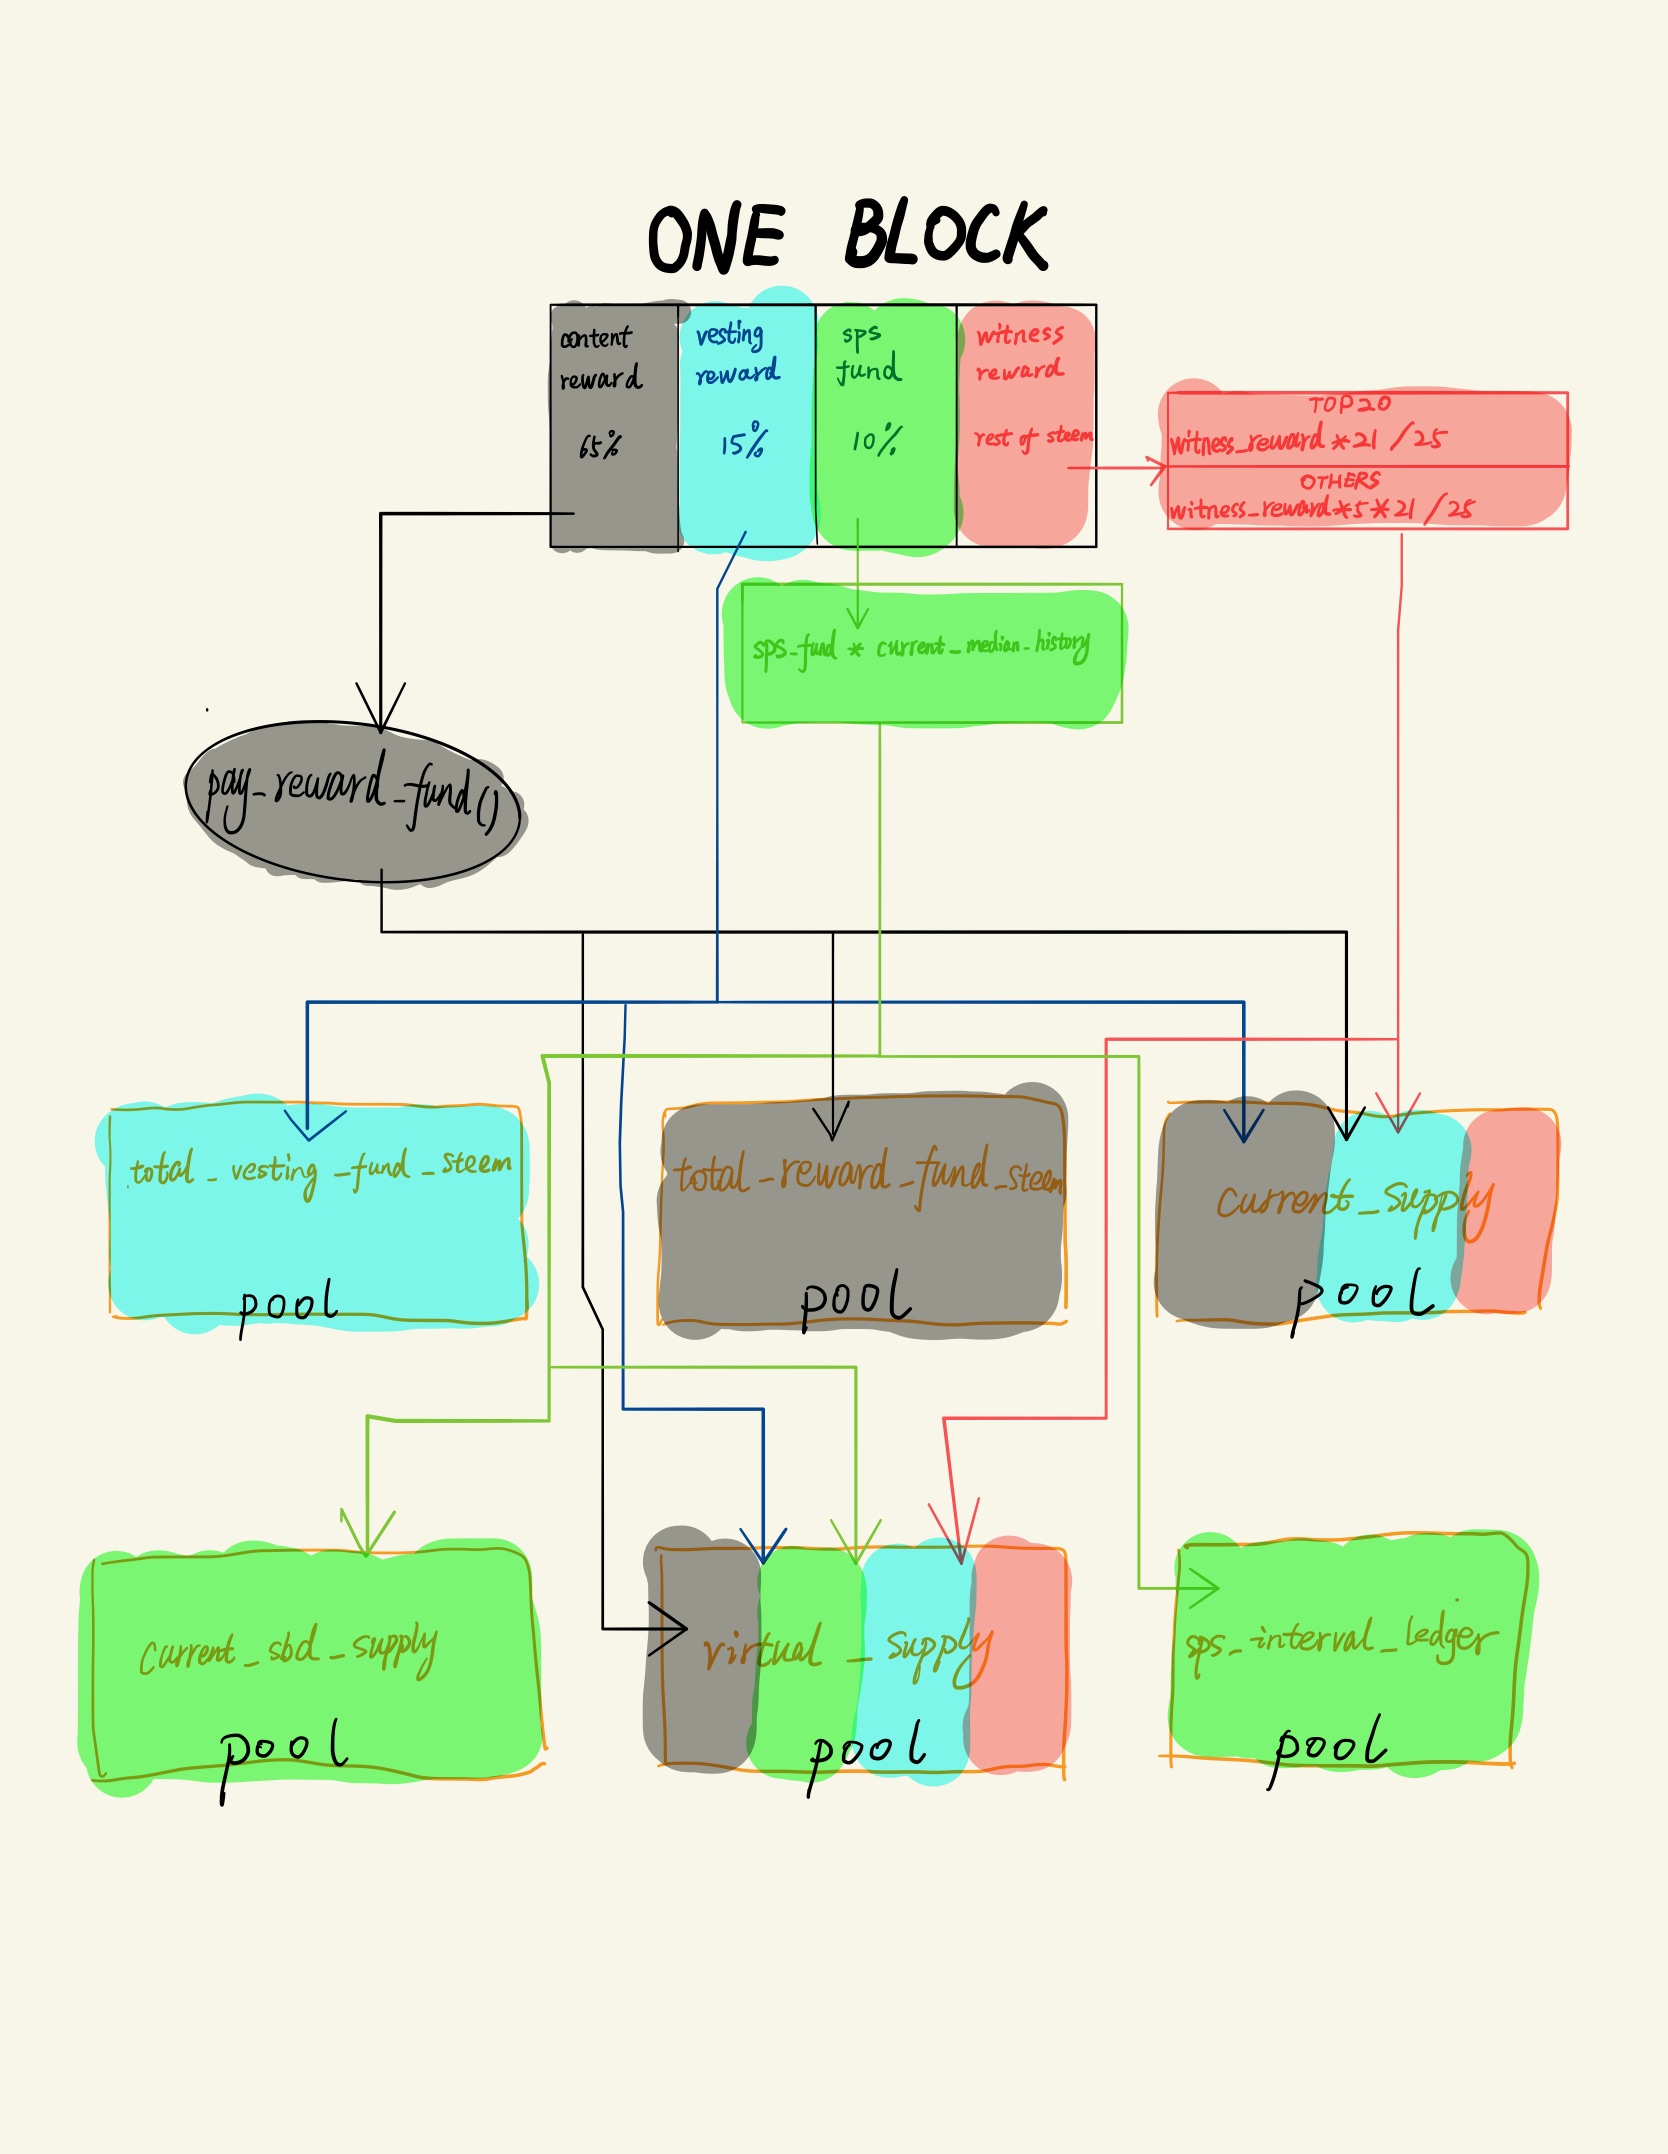 ONE BLOCK
content
reward
65%
vesting
reward
15%
sps
fund
10%
witness
reward
rest of steem
TOP 20
witness_reward *21 /25
OTHERS
witness_reward*5*21 /25
sps_fund * current_median_history
pay_reward_fund()
total_vesting_fund_steem
pool
total_reward_fund_steem
pool
current_supply
pool
current_sbd_supply
pool
virtual_supply
pool
sps_interval_ledger
pool